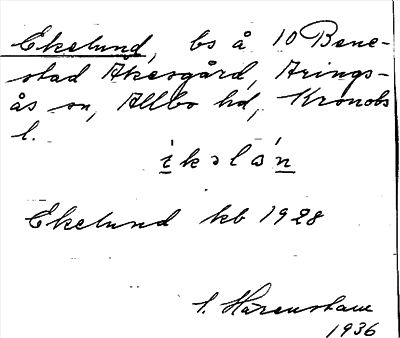 Ekelund, bs å 10 Bene-
stad Åkesgård, Arings-
ås sn, Allbo hd, Kronobs
l.
Ekelund kb 1928
1936